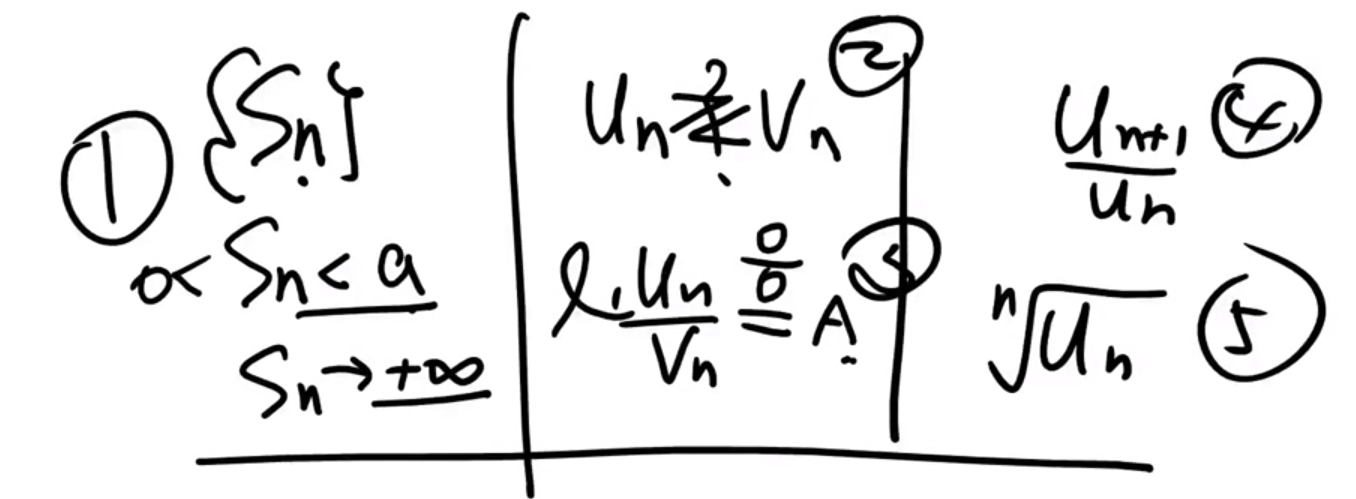 ① {Sₙ}
0 < Sₙ < a
Sₙ → +∞
Uₙ ≷ Vₙ ②
l. Uₙ/Vₙ =^{0/0} A ③
Uₙ₊₁/Uₙ ④
ⁿ√Uₙ ⑤